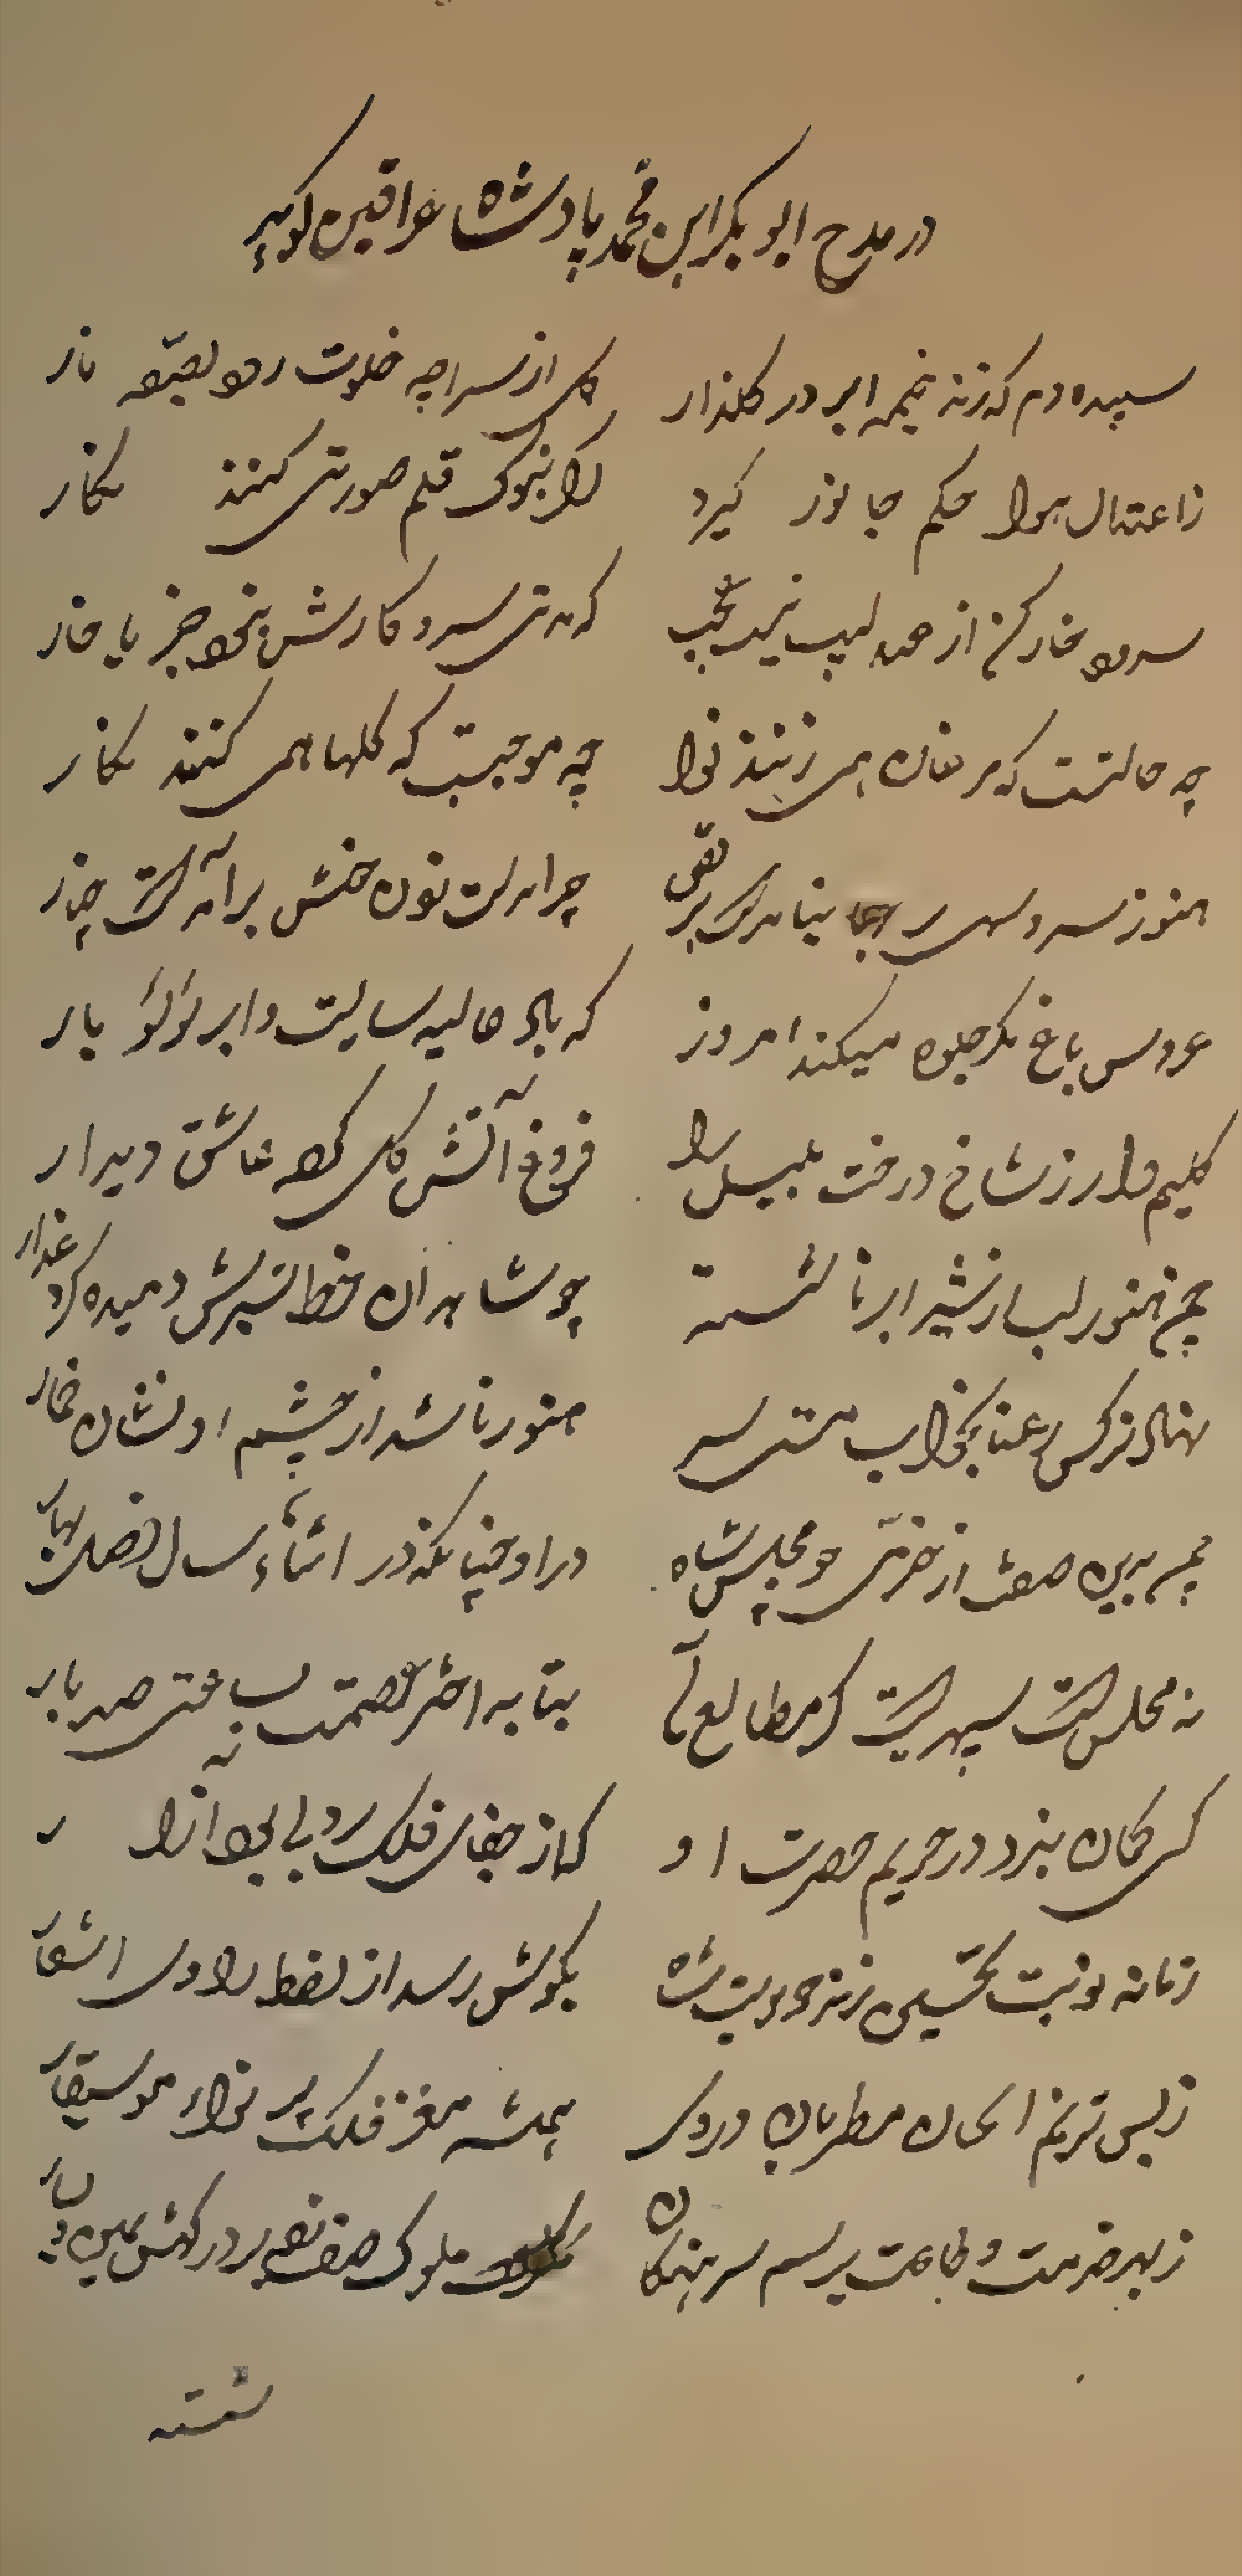 در مدح ابوبکر ابن محمد پادشاه عراقین کوید
سپیده دم که زند خیمه ابر در کلذار کل از سراچه خلوت رود بصفه بار
ز اعتدال هوا حکم جانور کیرد کر بنوک قلم صورتی کنند نکار
سرود خارکن از عندلیب نیست عجب که مدتی سر و کارش نبود جز با خار
چه حالتست که مرغان همی زنند نوا چه موجبست که کلها همی کنند نکار
هنوز سرو سهی بر جا
چرا بدست خنش برآمدست چنار
عروس باغ مکر جلوه میکند امروز که باد غالیه سایست و ابر لؤلؤ بار
کلیم وار ز شاخ درخت بلبل را فروغ آتش کل کرد عاشق دیدار
چمن هنوز لب از شیر ابر ناشسته چو شاهدان خط سبزش دمیده کرد عذار
نهاد نرکس رعنا بخواب مستی سر هنوز ناشده از چشم او نشان خمار
چمن بدین صفت از خرمی چو مجلس شاه در او چنانکه در اثناء سال فصل بهار
نه مجلس است سپهریست کز مطالع آن بتابد اختر عصمت بساعتی صد بار
کسی کمان نبرد در حریم حضرت او که از جفای فلک روی بود آزار
زمانه نوبت تحسین زند چو بیت شاه بکوش رسد از لفظ راوی اشعار
ز بس ترنم الحان مطربان در وی همیشه مغز فلک پر نواء موسیقار
ز بهر خدمت و طاعت برسم سرهنکان ملوک صف زده بر درکهش یمین و یسار
شسته